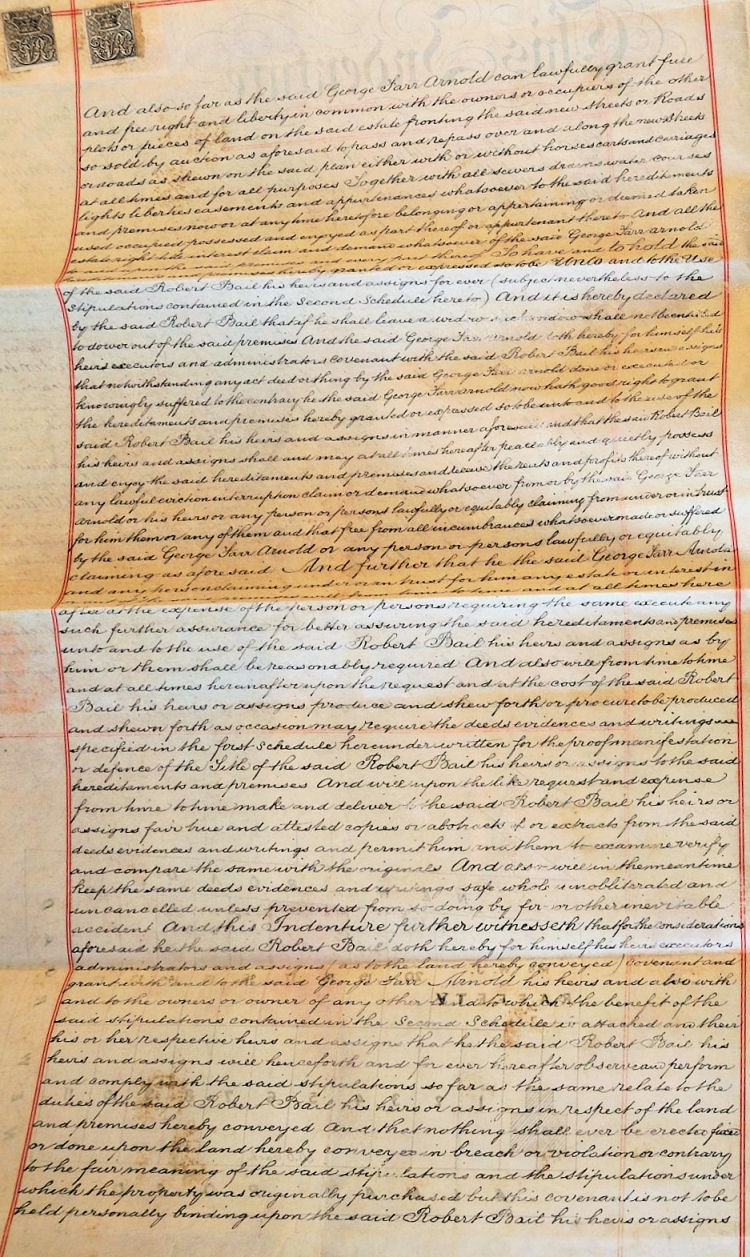 And also so far as the said George Farr Arnold can lawfully grant full
and free right and liberty in common with the owners or occupiers of the other
plots or pieces of land on the said estate fronting the said new streets or Roads
so sold by auction as aforesaid to pass and repass over and along the new streets
or roads as shewn on the said plan either with or without horses carts and carriages
at all times and for all purposes Together with all sewers drains water courses
lights liberties easements and appurtenances whatsoever to the said hereditaments
and premises now or at any time heretofore belonging or appertaining or deemed taken
used occupied possessed and enjoyed as part thereof or appurtenant thereto And all the
estate right title interest claim and demand whatsoever of the said George Farr Arnold
every part thereof To have and to hold the said
premises hereby granted or expressed so to be Unto and to the Use
of the said Robert Bail his heirs and assigns for ever (subject nevertheless to the
stipulations contained in the Second Schedule hereto) And it is hereby declared
by the said Robert Bail that if he shall leave a widow such widow shall not be entitled
to dower out of the said premises And the said George Farr Arnold doth hereby for himself his
heirs executors and administrators covenant with the said Robert Bail his heirs assigns
that notwithstanding any act deed or thing by the said George Farr Arnold done or executed or
knowingly suffered to the contrary he the said George Farr Arnold now hath good right to grant
the hereditaments and premises hereby granted or expressed so to be unto and to the use of the
said Robert Bail his heirs and assigns in manner aforesaid and that the said Robert Bail
his heirs and assigns shall and may at all times hereafter peaceably and quietly possess
and enjoy the said hereditaments and premises and receive the rents and profits thereof without
any lawful eviction interruption claim or demand whatsoever from or by the said George Farr
Arnold or his heirs or any person or persons lawfully or equitably claiming from under or in trust
for him them or any of them and that free from all incumbrances whatsoever made or suffered
by the said George Farr Arnold or any person or persons lawfully or equitably
claiming as aforesaid And further that he the said George Farr Arnold
and any person claiming under or in trust for him any estate or interest in
from time to time and at all times here
after at the expense of the person or persons requiring the same execute any
such further assurance for better assuring the said hereditaments and premises
unto and to the use of the said Robert Bail his heirs and assigns as by
him or them shall be reasonably required And also will from time to time
and at all times hereinafter upon the request and at the cost of the said Robert
Bail his heirs or assigns produce and shew forth or procure to be produced
and shewn forth as occasion may require the deeds evidences and writings
specified in the first Schedule hereunder written for the proof manifestation
or defence of the Title of the said Robert Bail his heirs or assigns to the said
hereditaments and premises And will upon the like request and expense
from time to time make and deliver to the said Robert Bail his heirs or
assigns fair true and attested copies or abstracts of or extracts from the said
deeds evidences and writings and permit him and them to examine verify
and compare the same with the originals And also will in the meantime
keep the same deeds evidences and writings safe whole unobliterated and
uncancelled unless prevented from so doing by fire or other inevitable
accident And this Indenture further witnesseth that for the considerations
aforesaid he the said Robert Bail doth hereby for himself his heirs executors
administrators and assigns (as to the land hereby conveyed) covenant and
grant with and to the said George Farr Arnold his heirs and also with
and to the owners or owner of any other land to which the benefit of the
said stipulations contained in the Second Schedule is attached and their
his or her respective heirs and assigns that he the said Robert Bail his
heirs and assigns will henceforth and for ever hereafter observe and perform
and comply with the said stipulations so far as the same relate to the
duties of the said Robert Bail his heirs or assigns in respect of the land
and premises hereby conveyed And that nothing shall ever be erected fixed
or done upon the land hereby conveyed in breach or violation or contrary
to the fair meaning of the said stipulations and the stipulations under
which the property was originally purchased but this covenant is not to be
held personally binding upon the said Robert Bail his heirs or assigns